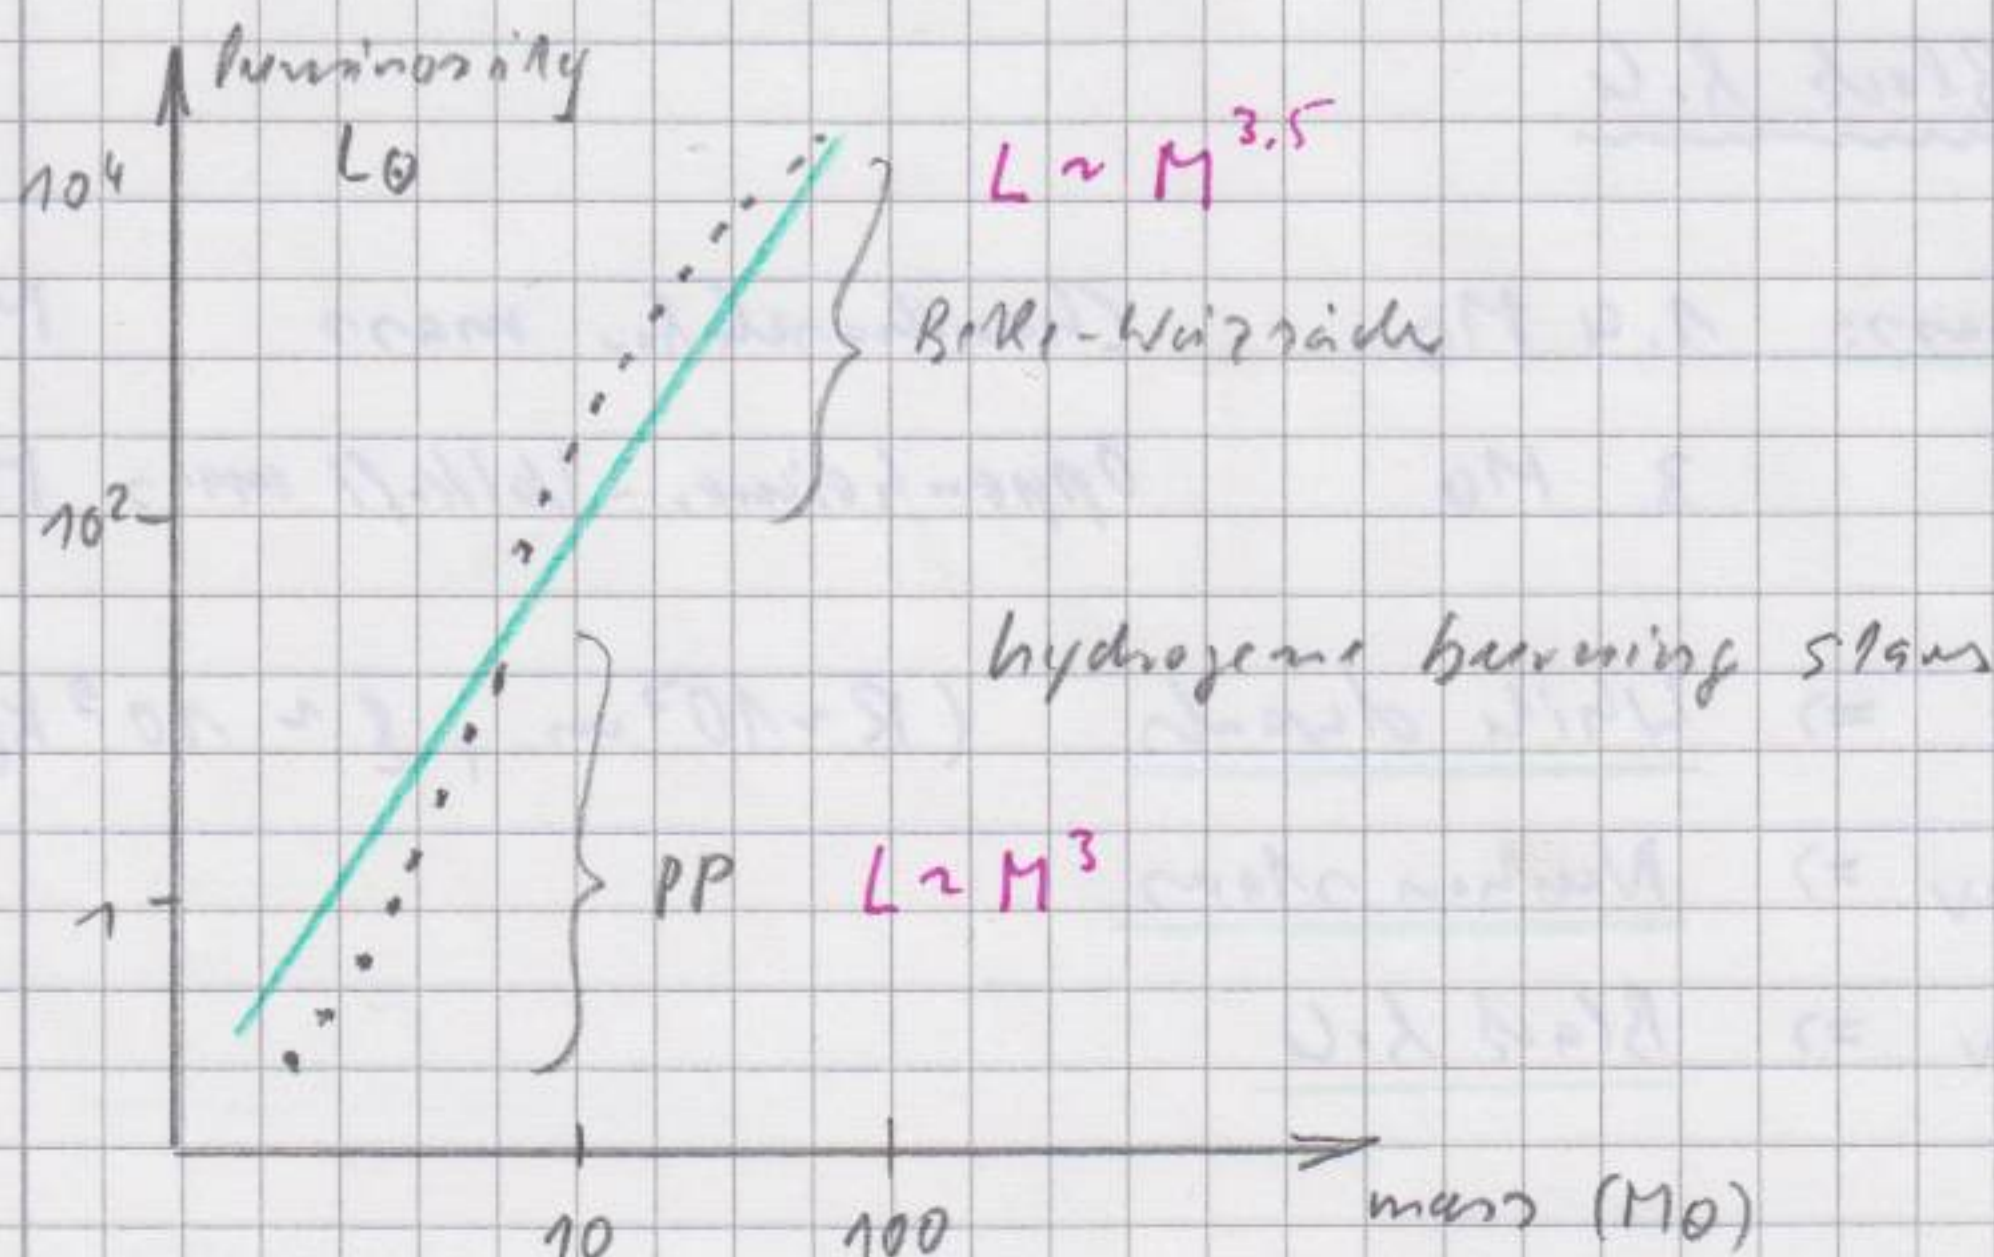 luminosity
L⊙
10⁴
L ~ M^3,5
Bethe-Weizsäcker
10²
hydrogene burning stars
1
PP L ~ M³
10 100
mass (M⊙)